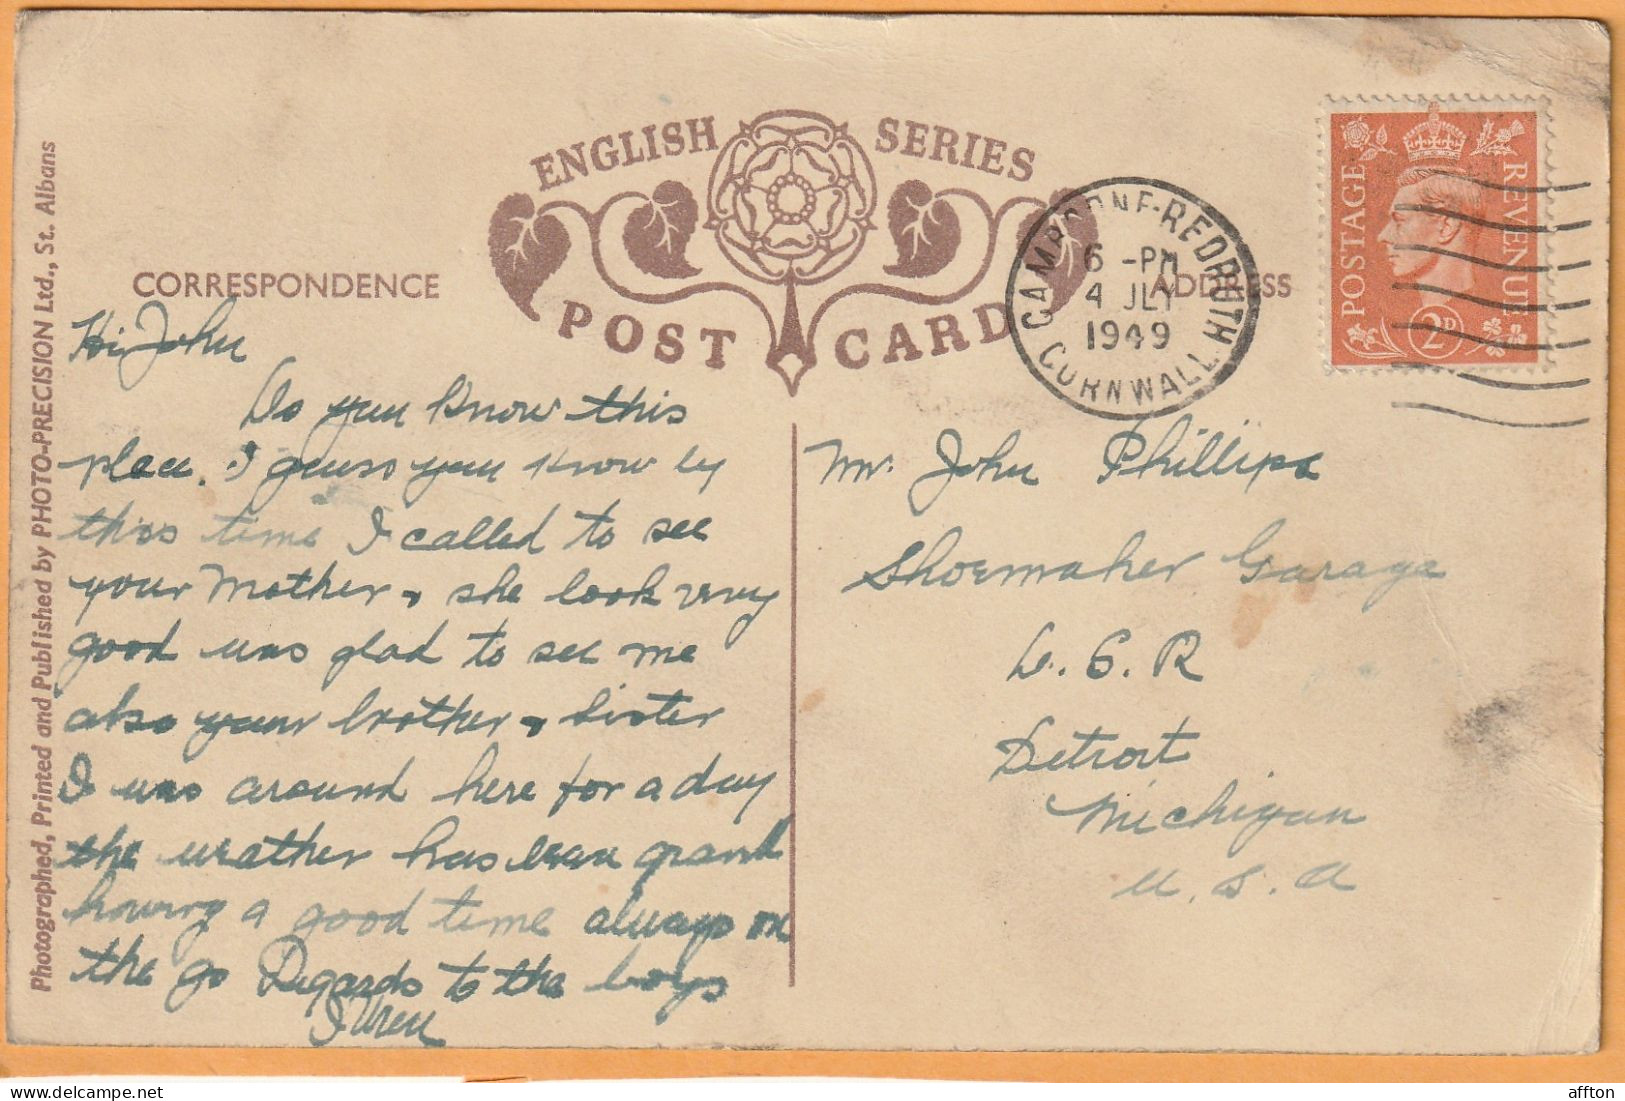 ENGLISH SERIES
POST CARD
CORRESPONDENCE
ADDRESS
Photographed, Printed and Published by PHOTO-PRECISION Ltd., St. Albans
CAMBORNE-REDRUTH
6 -PM
4 JLY
1949
CORNWALL
POSTAGE
REVENUE
2D
Hi John
Do you know this
place. I guess you know by
this time I called to see
your Mother, she look very
good was glad to see me
also your brother, Sister
I was around here for a day
the weather has been grand
having a good time always on
the go Regards to the boys
Mr. John Phillips
Shoemaker Garage
D. S. R
Detroit
Michigan
U. S. A
affton